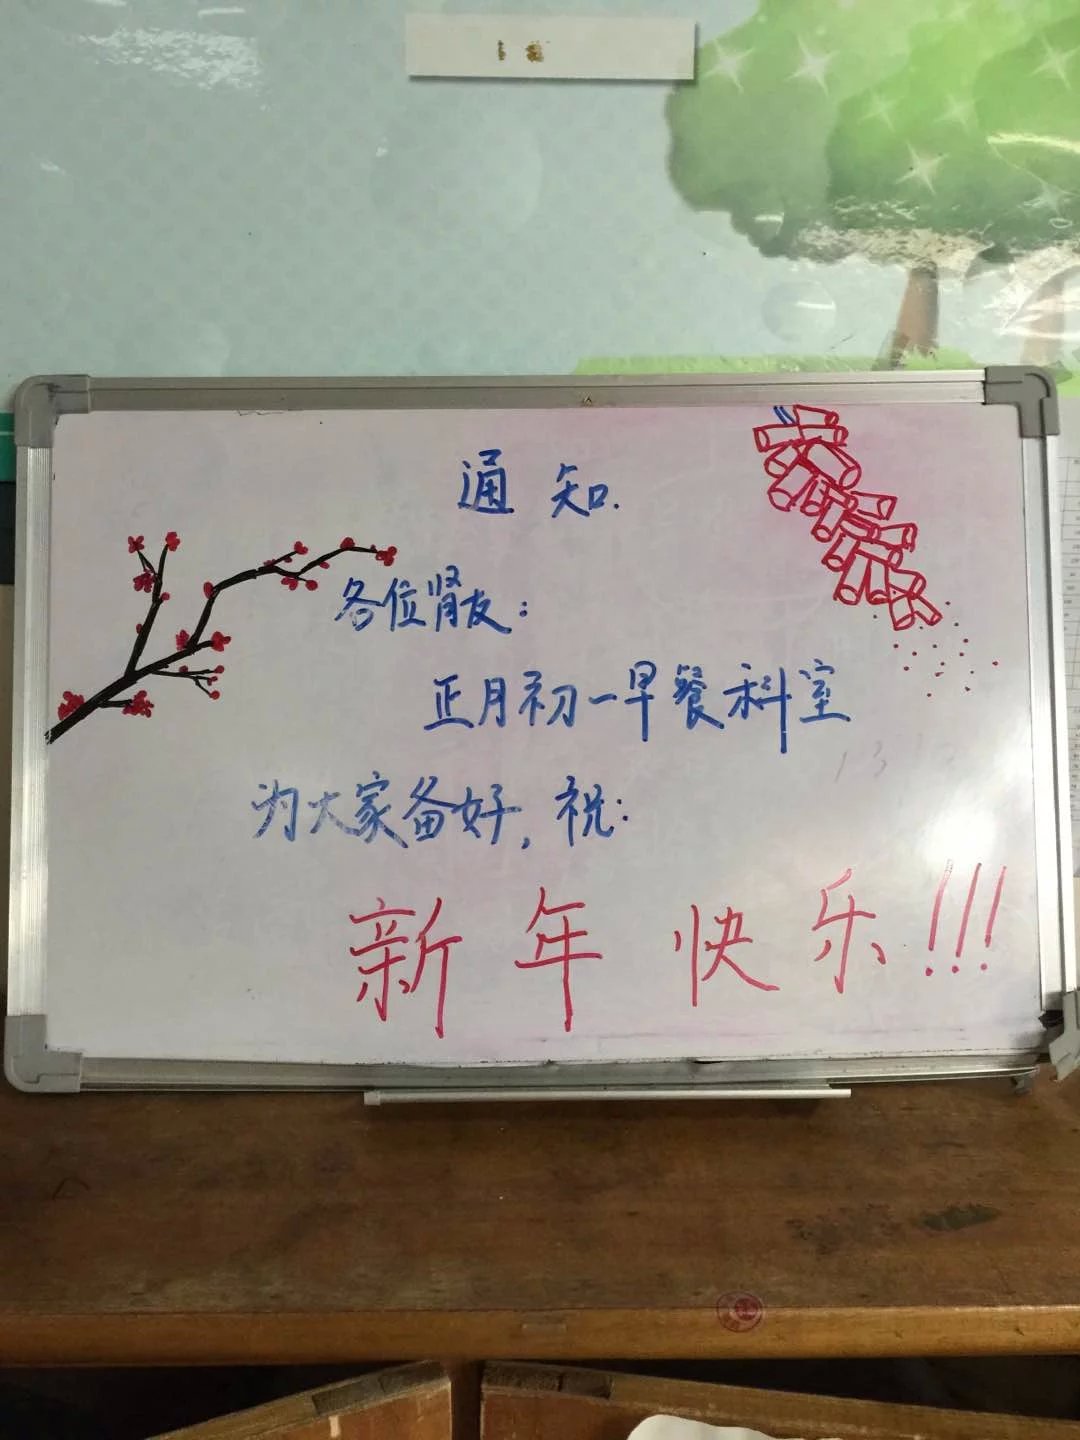 通知.
各位肾友:
正月初一早餐科室
为大家备好,祝:
新年快乐!!!